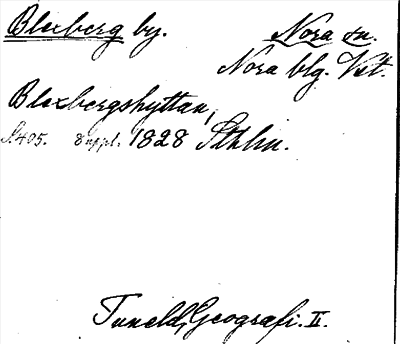 Blexberg by. Nora sn.
Nora blg. Vst.
Blexbergshyttan,
S. 405. 8 uppl. 1828 Sthlm.
Tuneld, Geografi. II.